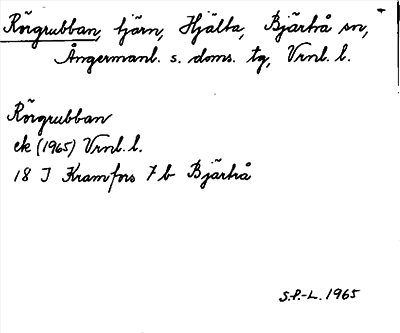 Rörgrubban, tjärn, Hjälta, Bjärtrå sn,
Ångermanl. s. doms. tg, Vrnl. l.
Rörgrubban
ek (1965) Vrnl. l.
18 J Kramfors 7 b Bjärtrå
S.P.-L. 1965